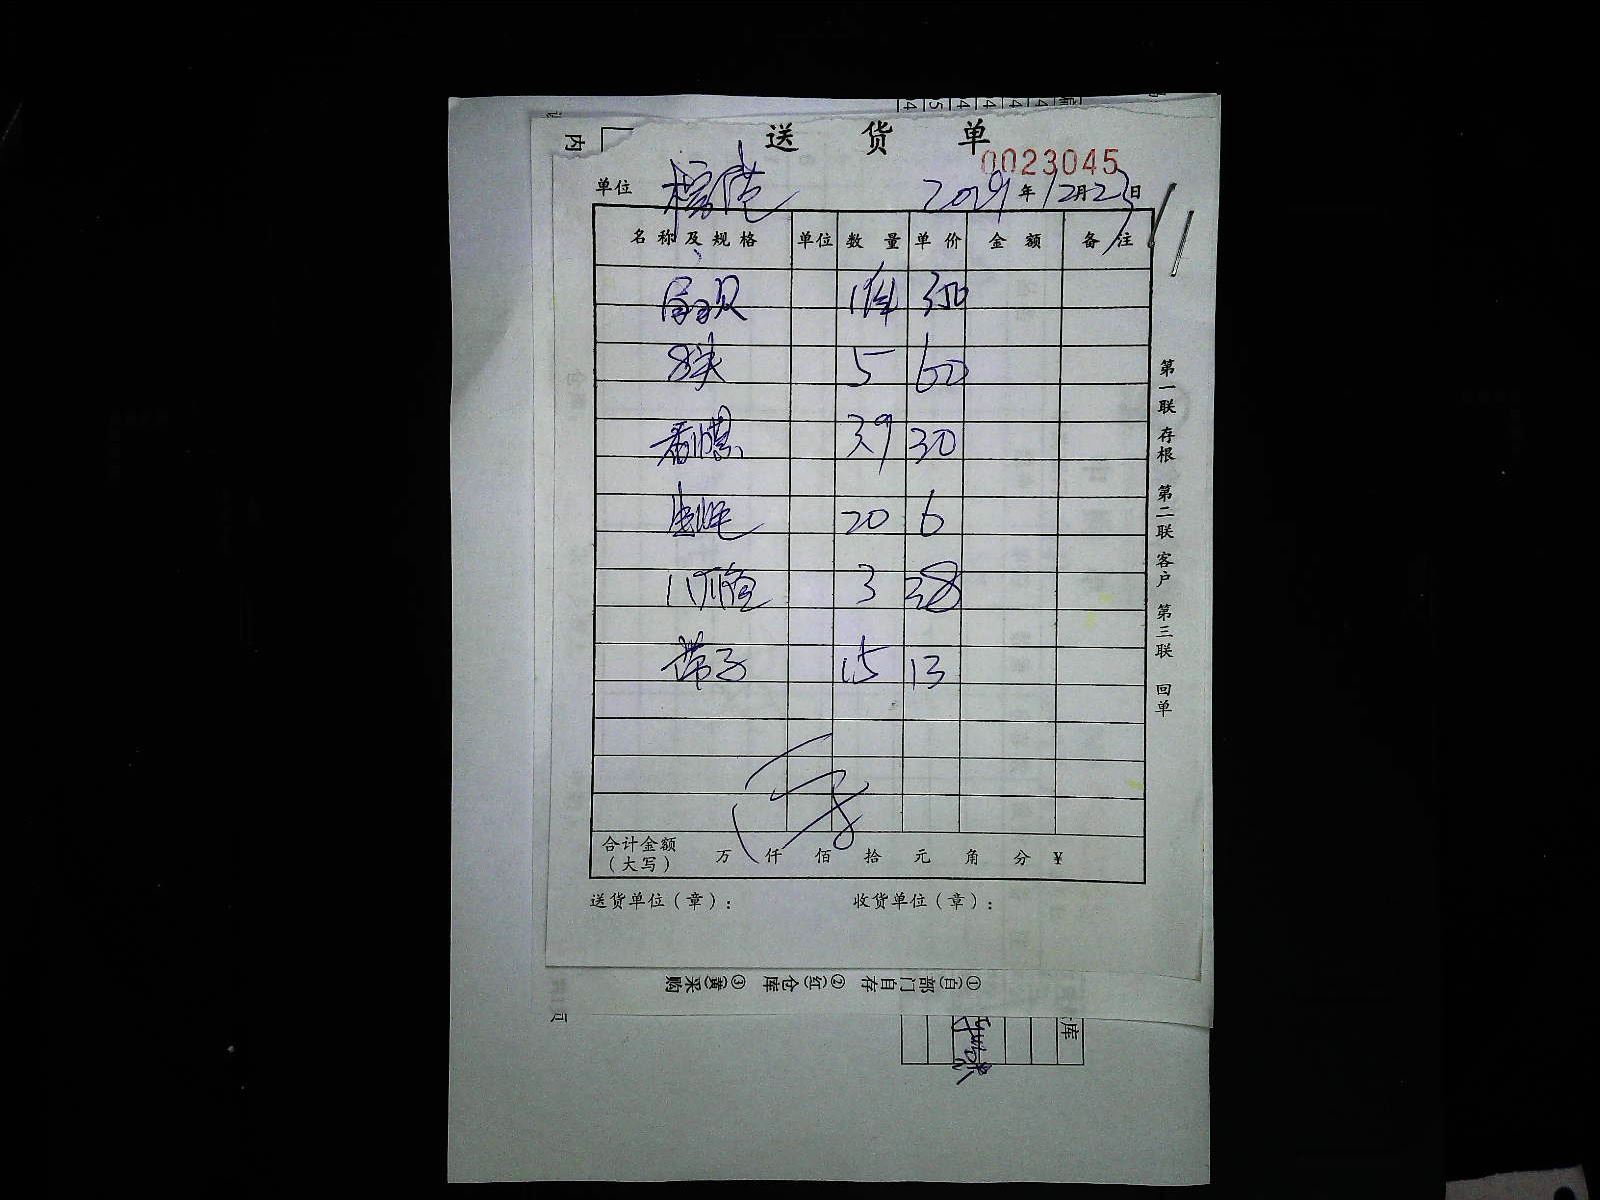 送 货 单
0023045
单位
年12月23日
名称及规格 单位 数量 单价 金额 备注
扇贝 1件 350
8头 5 60
39 30
20 6
3 38
带子 15 13
合计金额（大写） 万 仟 佰 拾 元 角 分 ¥
送货单位（章）： 收货单位（章）：
第一联 存根 第二联 客户 第三联 回单
①(白)部门自存 ②(红)仓库 ③(黄)采购
内
库